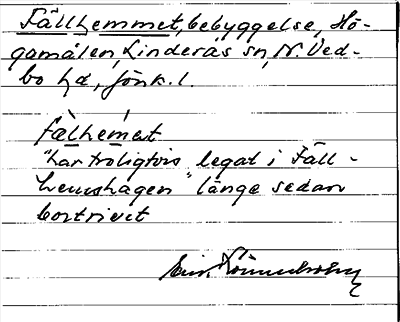 Fällhemmet, bebyggelse, Hö-
gamålen, Linderås sn, N. Ved-
bo hd, Jönk. l.
fälhemet
"har troligtvis legat i Fäll-
hemshagen" länge sedan
bortrivet